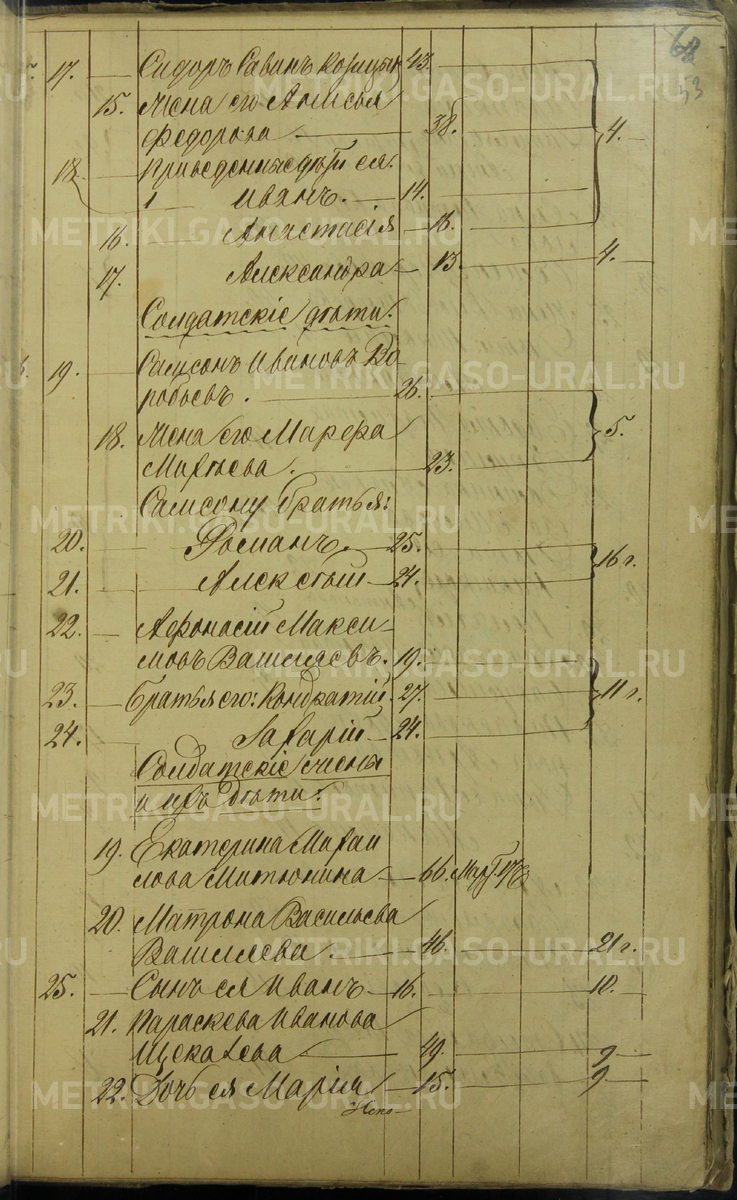 53
17. Сидоръ Савинъ 43.
15. Жена его Анисья
Федорова 38. 4.
18. Приведенныедѣти ея:
1 Иванъ. 14.
16. Анастасія 16.
17. Александра 13. 4.
Солдатскіе дѣти:
19. Самсонъ Ивановъ Во-
робьевъ. 26.
18. Жена его Марфа 5.
Матѳеева. 23.
Самсону братья:
20. Романъ. 25. 16 г.
21. Алексѣй 24.
22. Афонасій Макси-
мовъ Вашляевъ. 19.
23. братья его: Кондратій. 27. 11 г.
24. Захарій 24.
Солдатскіе жены
и ихъ дѣти:
19. Екатерина Михаи
лова Митюнина 66.
20. Матрона Васильева
Вашляева. 46. 21 г.
25. Сынъ ея Иванъ 16. 10.
21. Параскева Иванова
49. 9
22. Дочь ея Марія 15. 9
METRIKI.GASO-URAL.RU